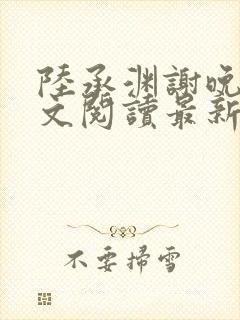 陸承淵謝晚
文閱讀最新
不要掃雪